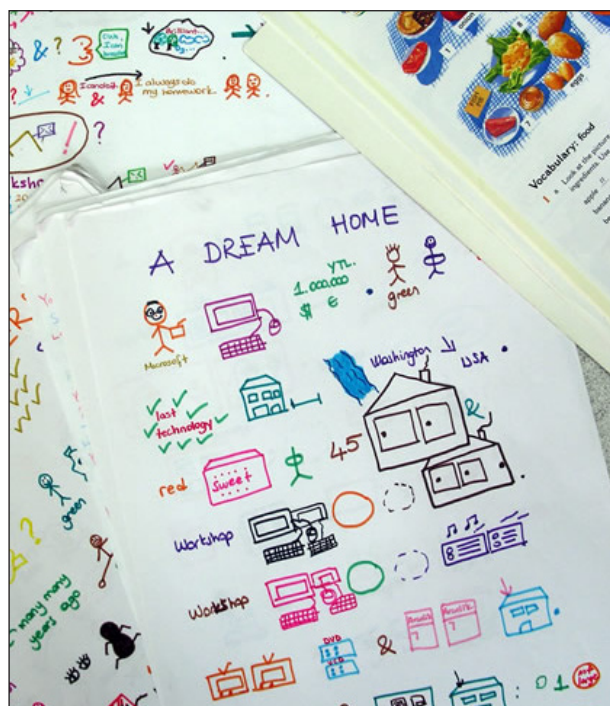 & ?
I always do
my homework.
&
?
A DREAM HOME
YTL.
1.000.000
$ €
green
Microsoft
Washington
USA
last
technology
&
red
sweet
45
Workshop
Workshop
green
?
many many
years ago
DVD
VCD
&
: 0 1
onion
8
1
eggs
7
Vocabulary: food
1 a Look at the picture
ingredients. Use
apple